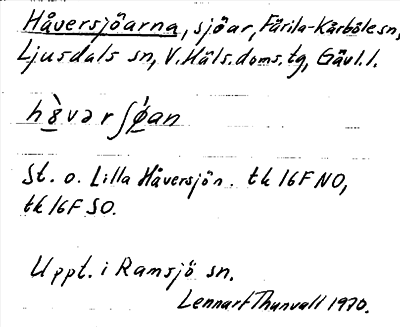 Håversjöarna, sjöar, Färila-Kårböle sn,
Ljusdals sn, V. Häls. doms. tg, Gävl. l.
St. o. Lilla Håversjön. tk 16F NO,
tk 16F SO.
Uppt. i Ramsjö sn.
Lennart Thunvall 1970.